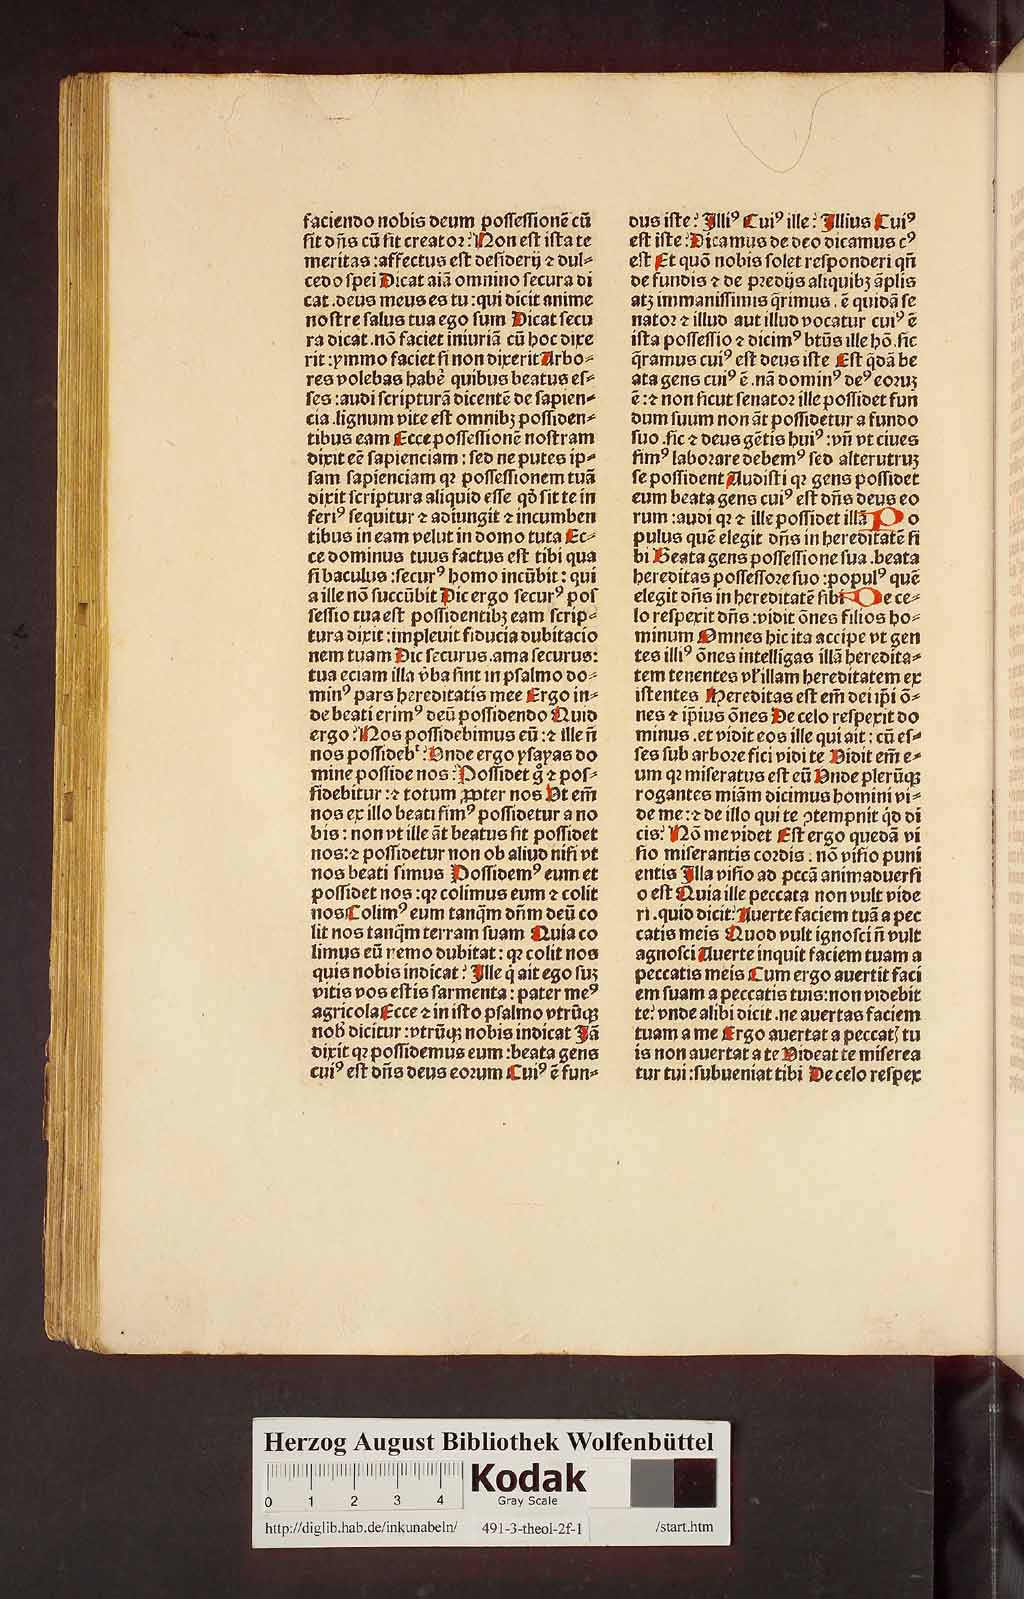 faciendo nobis deum possessionē cū
sit dn̄s cū sit creator: Non est ista te
meritas: affectus est desiderij ⁊ dul⸗
cedo spei Dicat aīā omnino secura di
cat. deus meus es tu: qui dicit anime
nostre salus tua ego sum Dicat secu
ra dicat. nō faciet iniuriā cū hoc dixe
rit: ymmo faciet si non dixerit Arbo⸗
res volebas habē quibus beatus es⸗
ses: audi scripturā dicentē de sapien⸗
cia. lignum vite est omnibꝫ possiden⸗
tibus eam Ecce possessionē nostram
dixit eē sapienciam: sed ne putes ip⸗
sam sapienciam qꝛ possessionem tuā
dixit scriptura aliquid esse qđ sit te in
feriꝰ sequitur ⁊ adiungit ⁊ incumben
tibus in eam velut in domo tuta Ec⸗
ce dominus tuus factus est tibi qua
si baculus: securꝰ homo incūbit: qui
a ille nō succūbit Dic ergo securꝰ pos
sessio tua est possidentibꝫ eam scrip⸗
tura dixit: impleuit fiducia dubitacio
nem tuam Dic securus. ama securus:
tua eciam illa v̄ba sint in psalmo do⸗
minꝰ pars hereditatis mee Ergo in⸗
de beati erimꝰ deū possidendo Quid
ergo: Nos possidebimus eū: ⁊ ille n̄
nos possidebᵗ: Vnde ergo ysayas do
mine posside nos: Possidet gͦ ⁊ pos⸗
sidebitur: ⁊ totum ꝓpter nos Vt em̄
nos ex illo beati simꝰ possidetur a no
bis: non vt ille āt beatus sit possidet
nos: ⁊ possidetur non ob aliud nisi vt
nos beati simus Possidemꝰ eum et
possidet nos: qꝛ colimus eum ⁊ colit
nos Colimꝰ eum tanq̄m dn̄m deū co
lit nos tanq̄m terram suam Quia co
limus eū nemo dubitat: qꝛ colit nos
quis nobis indicat: Ille q̇ ait ego suꝫ
vitis vos estis sarmenta: pater meꝰ
agricola Ecce ⁊ in isto psalmo vtrūqꝫ
nob̄ dicitur: vtrūqꝫ nobis indicat Jā
dixit qꝛ possidemus eum: beata gens
cuiꝰ est dn̄s deus eorum Cuiꝰ ē fun⸗
dus iste: Illiꝰ Cuiꝰ ille: Illius Cuiꝰ
est iste: Dicamus de deo dicamus cꝰ
est Et quō nobis solet responderi qn̄
de fundis ⁊ de predijs aliquibꝫ āplis
atꝫ immanissimis q̄rimus. ē quidā se
nator ⁊ illud aut illud vocatur cuiꝰ ē
ista possessio ⁊ dicimꝰ btūs ille hō. sic
q̄ramus cuiꝰ est deus iste Est q̄dā be
ata gens cuiꝰ ē. nā dominꝰ deꝰ eoruꝫ
ē: ⁊ non sicut senator ille possidet fun
dum suum non āt possidetur a fundo
suo. sic ⁊ deus gētis huiꝰ: vn̄ vt ciues
simꝰ laborare debemꝰ sed alterutruꝫ
se possident Audisti qꝛ gens possidet
eum beata gens cuiꝰ est dn̄s deus eo
rum: audi qꝛ ⁊ ille possidet illā Po
pulus quē elegit dn̄s in hereditatē si
bi Beata gens possessione sua. beata
hereditas possessore suo: populꝰ quē
elegit dn̄s in hereditatē sibi De ce⸗
lo respexit dn̄s: vidit ōnes filios ho⸗
minum Omnes hic ita accipe vt gen
tes illiꝰ ōnes intelligas illā heredita⸗
tem tenentes vl' illam hereditatem ex
istentes Hereditas est em̄ dei ip̄i ō⸗
nes ⁊ ip̄ius ōnes De celo respexit do
minus. et vidit eos ille qui ait: cū es⸗
ses sub arbore fici vidi te Vidit em̄ e⸗
um qꝛ miseratus est eū Vnde plerūqꝫ
rogantes miām dicimus homini vi⸗
de me: ⁊ de illo qui te ꝯtempnit q̇d di
cis: Nō me videt Est ergo quedā vi
sio miserantis cordis. nō visio puni
entis Illa visio ad pccā animaduersi
o est Quia ille peccata non vult vide
ri. quid dicit: Auerte faciem tuā a pec
catis meis Quod vult ignosci n̄ vult
agnosci Auerte inquit faciem tuam a
peccatis meis Cum ergo auertit faci
em suam a peccatis tuis: non videbit
te: vnde alibi dicit. ne auertas faciem
tuam a me Ergo auertat a peccatꝭ tu
is non auertat a te Videat te miserea
tur tui: subueniat tibi De celo respex
Herzog August Bibliothek Wolfenbüttel
0 1 2 3 4
Kodak
Gray Scale
http://diglib.hab.de/inkunabeln/ 491-3-theol-2f-1 /start.htm